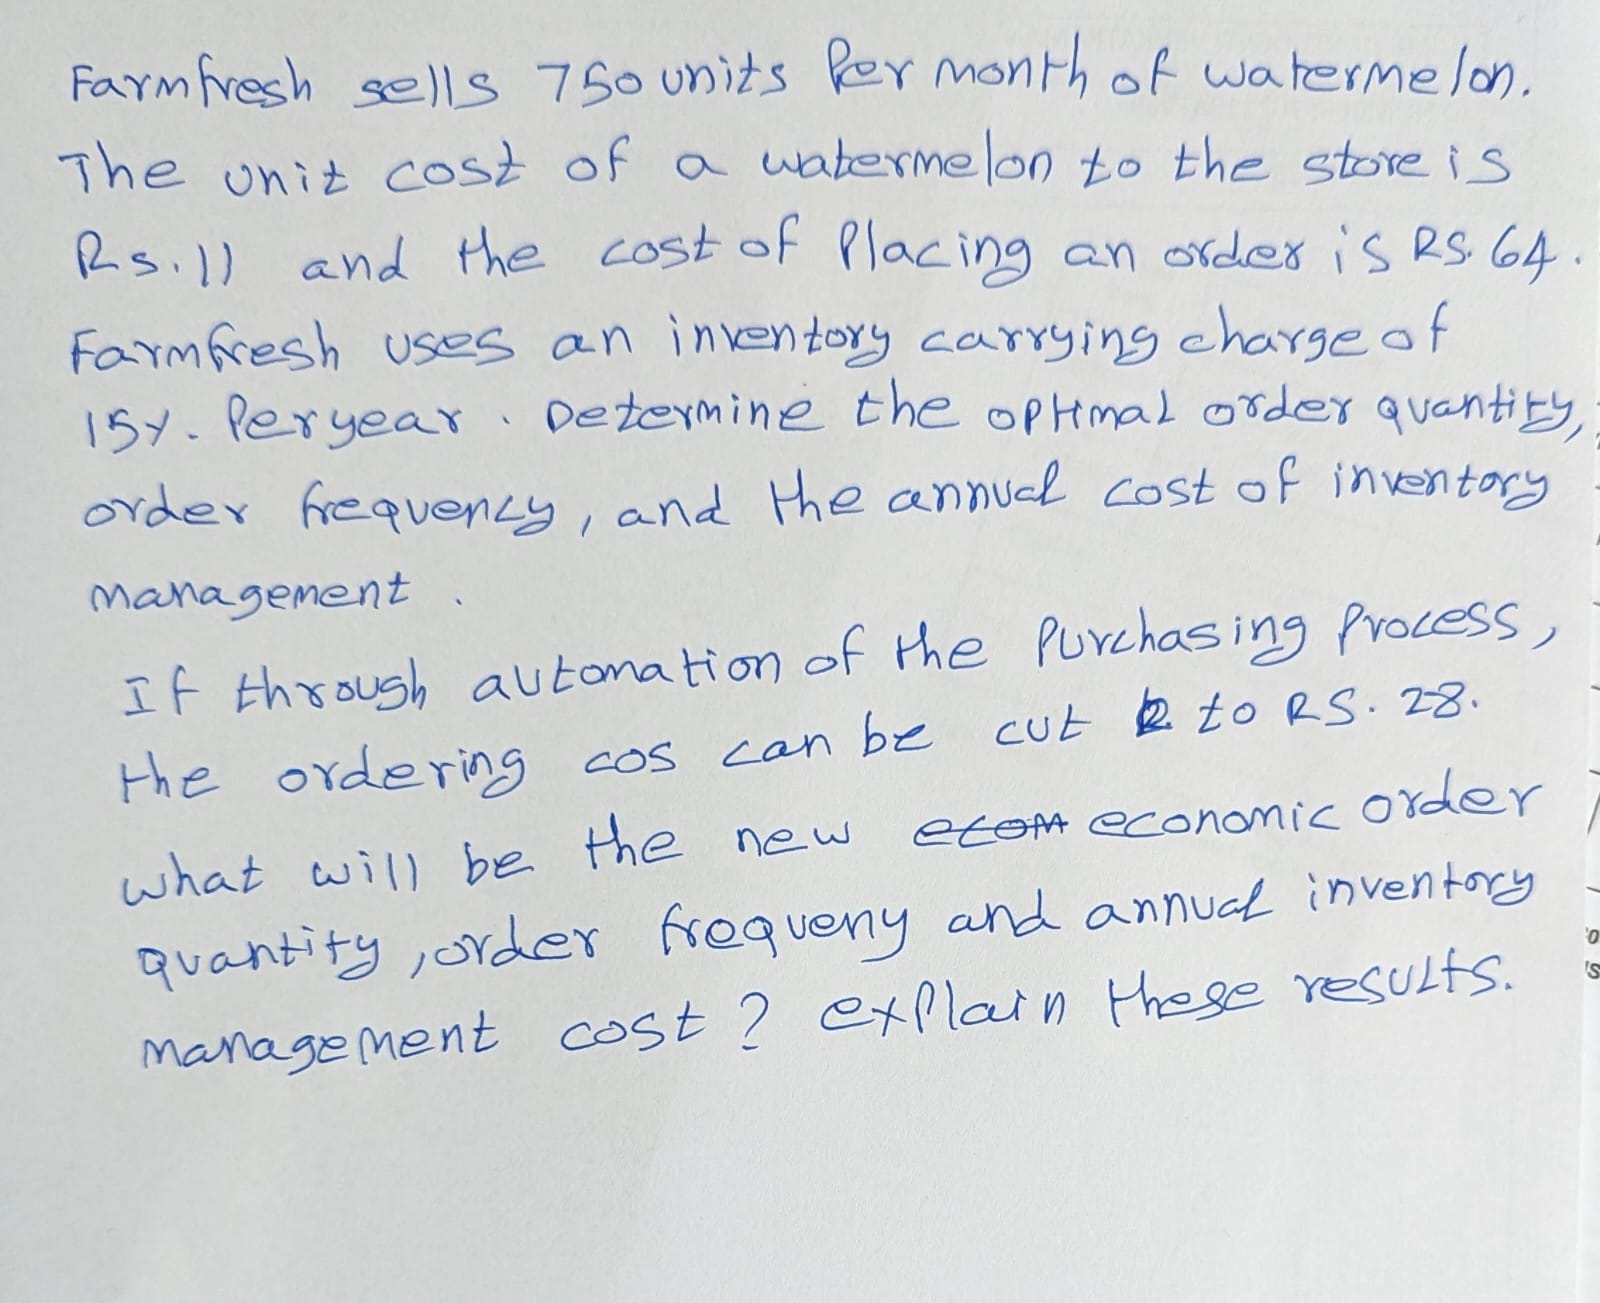 Farmfresh sells 750 units Per month of watermelon.
The unit cost of a watermelon to the store is
Rs.11 and the cost of Placing an order is RS. 64.
Farmfresh uses an inventory carrying charge of
15%. Per year. Determine the optimal order quantity,
order frequency, and the annual cost of inventory
management.
If through automation of the Purchasing Process,
the ordering cos can be cut to RS. 28.
what will be the new economic order
quantity, order frequeny and annual inventory
management cost? explain these results.